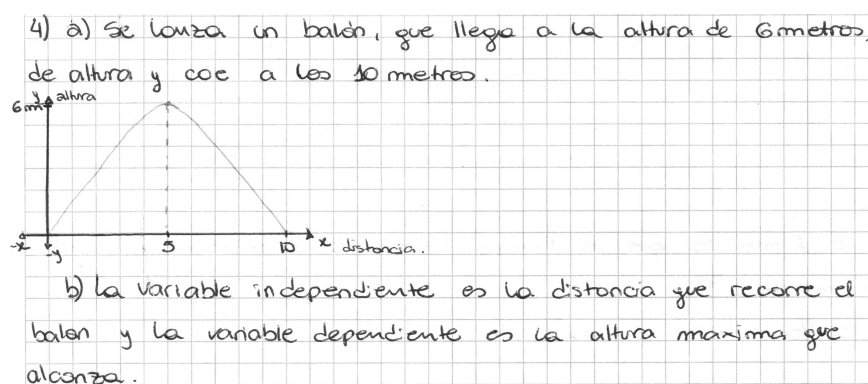 4) a) Se lanza un balón, que llega a la altura de 6 metros,
de altura y cae a los 10 metros.
y altura
6 m
-x -y 5 10 x distancia.
b) La variable independiente es la distancia que recorre el
balon y la variable dependiente es la altura maxima que
alcanza.